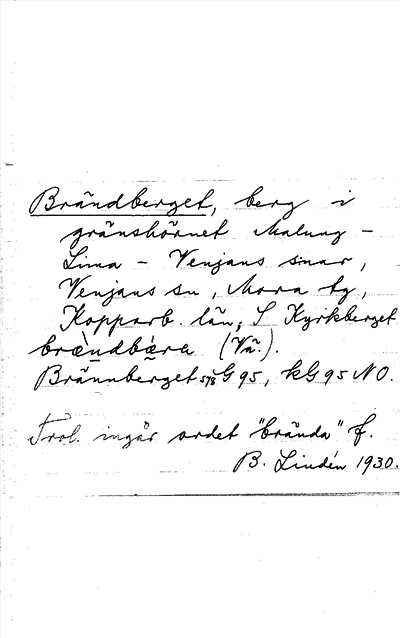 Brändberget, berg i
gränshörnet Malung –
Lima – Venjans snar,
Venjans sn, Mora tg,
Kopparb. län, S Kyrkberget
brä̀ndbä̀ra (Vä.).
Brännberget 578 G 95, kG 95 NO.
Trol. ingår ordet "brända" f.
B. Lindén 1930.